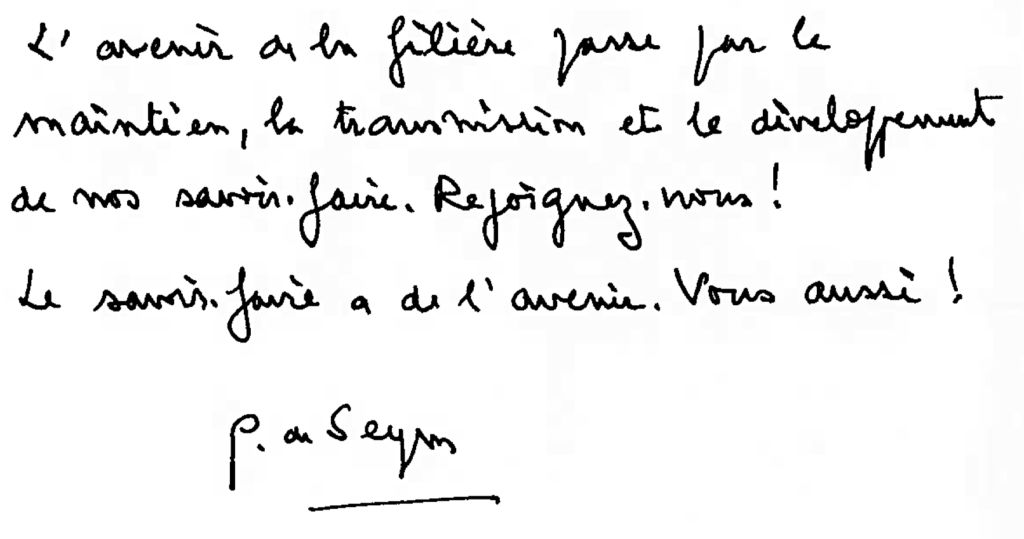 L'avenir de la filière passe par le
maintien, la transmission et le développement
de nos savoir-faire. Rejoignez-nous !
Le savoir-faire a de l'avenir. Vous aussi !
P. de